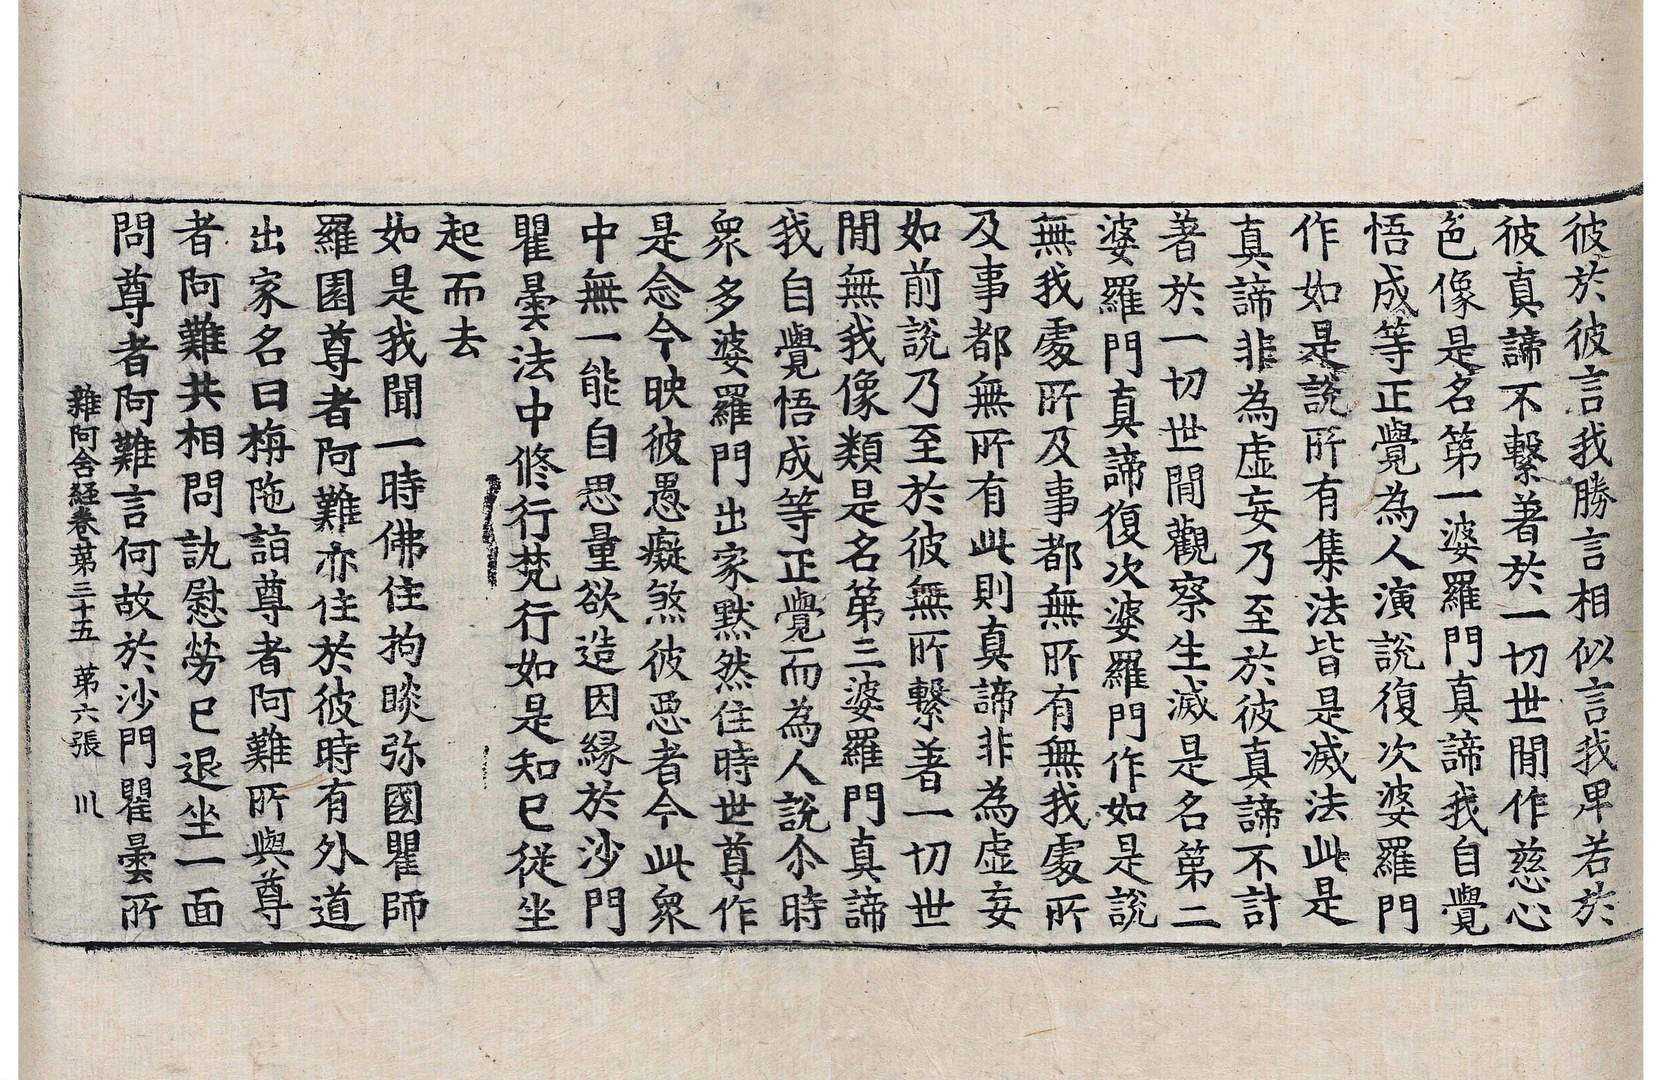 彼於彼言我勝言相似言我卑若於
彼真諦不繫著於一切世間作慈心
色像是名第一婆羅門真諦我自覺
悟成等正覺為人演說復次婆羅門
作如是說所有集法皆是滅法此是
真諦非為虛妄乃至於彼真諦不計
著於一切世間觀察生滅是名第二
婆羅門真諦復次婆羅門作如是說
無我處所及事都無所有無我處所
及事都無所有此則真諦非為虛妄
如前說乃至於彼無所繫著一切世
間無我像類是名第三婆羅門真諦
我自覺悟成等正覺而為人說尒時
眾多婆羅門出家默然住時世尊作
是念今映彼愚癡煞彼惡者今此眾
中無一能自思量欲造因緣於沙門
瞿曇法中修行梵行如是知已從坐
起而去
如是我聞一時佛住拘睒弥國瞿師
羅園尊者阿難亦住於彼時有外道
出家名曰栴陁詣尊者阿難所與尊
者阿難共相問訊慰勞已退坐一面
問尊者阿難言何故於沙門瞿曇所
雜阿含経卷第三十五 第六張 川